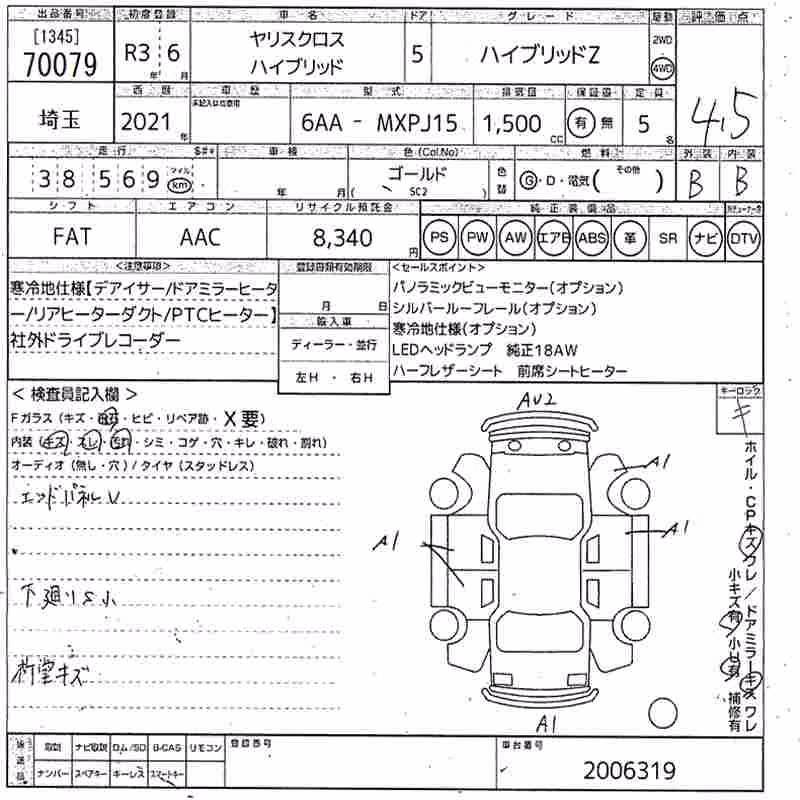 出品番号 初度登録 車名 ドア グレード 駆動 評価点
[1345] 70079 R3年 6月 ヤリスクロス ハイブリッド 5 ハイブリッドZ 2WD 4WD 4.5
西暦 車歴 型式 排気量 保証書 定員
埼玉 2021年 未記入は自家用 6AA - MXPJ15 1,500cc 有 無 5名
走行 S#* 車検 色(Col.No) 燃料 外装 内装
38569 マイル km 年 月 ( ゴールド 5C2 ) 色替 G・D・電気( その他 ) B B
シフト エアコン リサイクル預託金 純正装備品
FAT AAC 8,340円 PS PW AW エアB ABS 革 SR ナビ DTV
<注意事項> 登録書類有効期限 <セールスポイント>
寒冷地仕様【デアイサー/ドアミラーヒータ
ー/リアヒーターダクト/PTCヒーター】
社外ドライブレコーダー
月 日
輸入車
ディーラー・並行
左H ・ 右H
パノラミックビューモニター(オプション)
シルバールーフレール(オプション)
寒冷地仕様(オプション)
LEDヘッドランプ 純正18AW
ハーフレザーシート 前席シートヒーター
<検査員記入欄>
Fガラス(キズ・飛石・ヒビ・リペア跡・X要)
内装(キズ・スレ・汚れ・シミ・コゲ・穴・キレ・破れ・割れ)
オーディオ(無し・穴)/タイヤ(スタッドレス)
エンドパネルU
下廻りS小
荷室キズ
AU2
A1
A1
A1
A1
キーロック
キ
ホイル・CPキズワレ/ドアミラーキズワレ
小キズ有・小U有・補修有
後送品 取説 ナビ取説 ロム/SD B-CAS リモコン 登録番号 車台番号
ナンバー スペアキー キーレス スマートキー 2006319